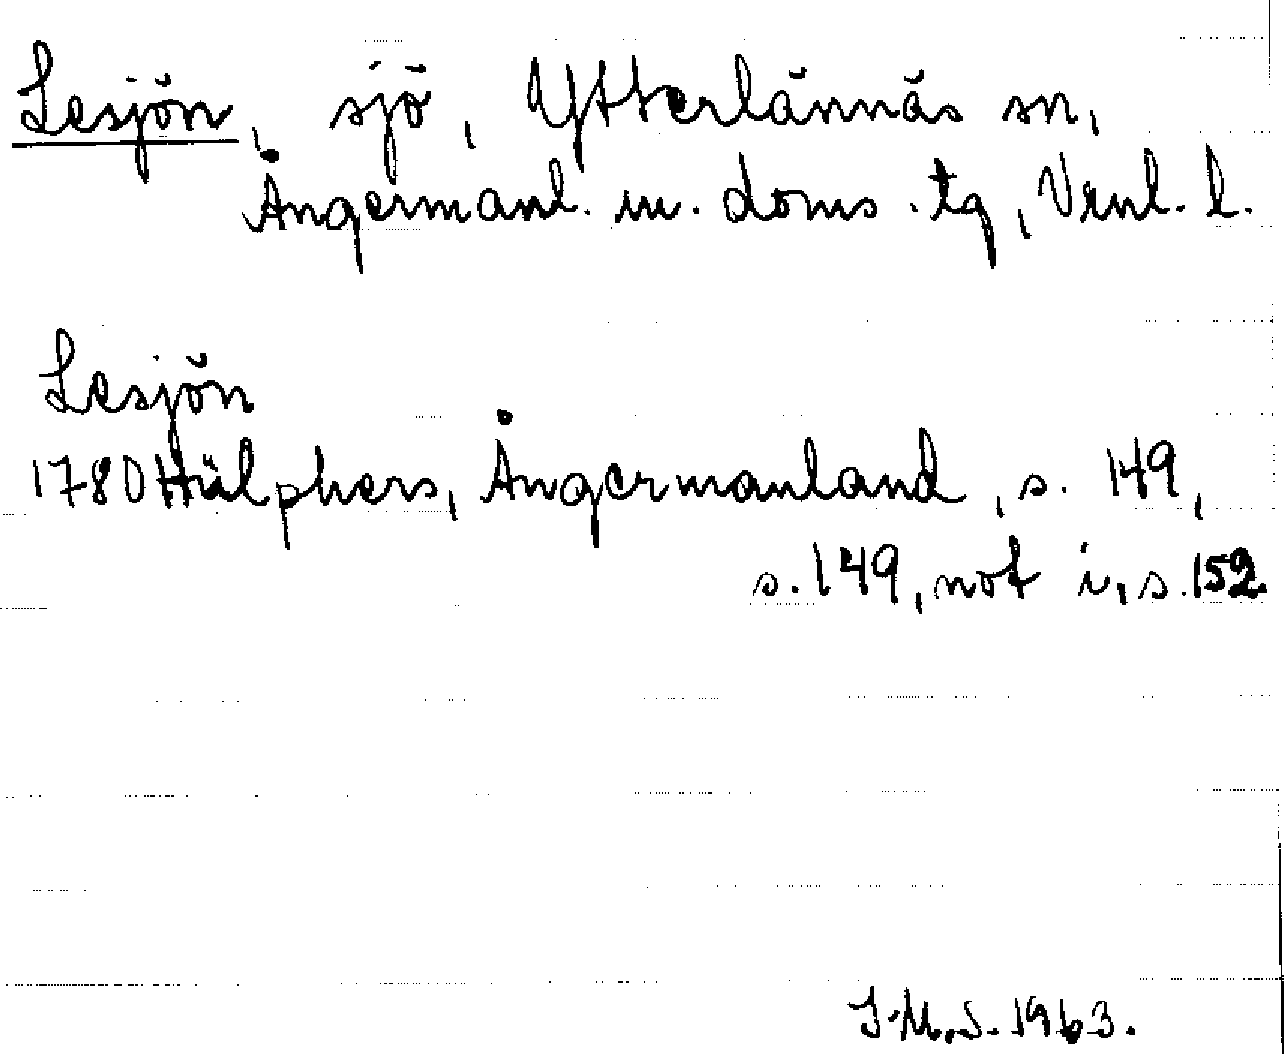 Lesjön, sjö, Ytterlännäs sn,
Ångermanl. m. doms. tg, Vrnl. l.
Lesjön
1780 Hülphers, Ångermanland, s. 149,
s. 149, not i, s. 152
I.M.S. 1963.